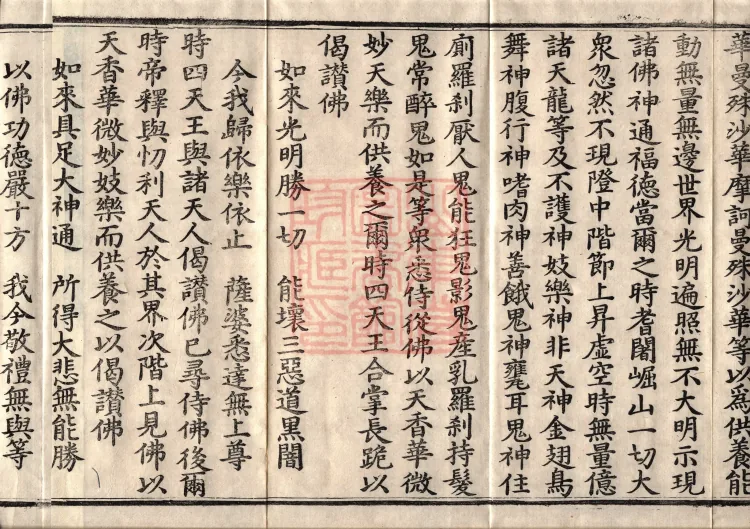 華曼殊沙華摩訶曼殊沙華等以爲供養能
動無量無邊世界光明遍照無不大明示現
諸佛神通福德當爾之時耆闍崛山一切大
衆忽然不現隥中階節上昇虛空時無量億
諸天龍等及不護神妓樂神非天神金翅鳥
舞神腹行神嗜肉神善餓鬼神甕耳鬼神住
廁羅刹厭人鬼能狂鬼影鬼産乳羅刹持髮
鬼常醉鬼如是等衆悉侍從佛以天香華微
妙天樂而供養之爾時四天王合掌長跪以
偈讃佛
如來光明勝一切　能壞三惡道黑闇
今我歸依樂依止　薩婆悉達無上尊
時四天王與諸天人偈讃佛已尋侍佛後爾
時帝釋與忉利天人於其界次階上見佛以
天香華微妙妓樂而供養之以偈讃佛
如來具足大神通　所得大悲無能勝
以佛功德嚴十方　我今敬禮無與等